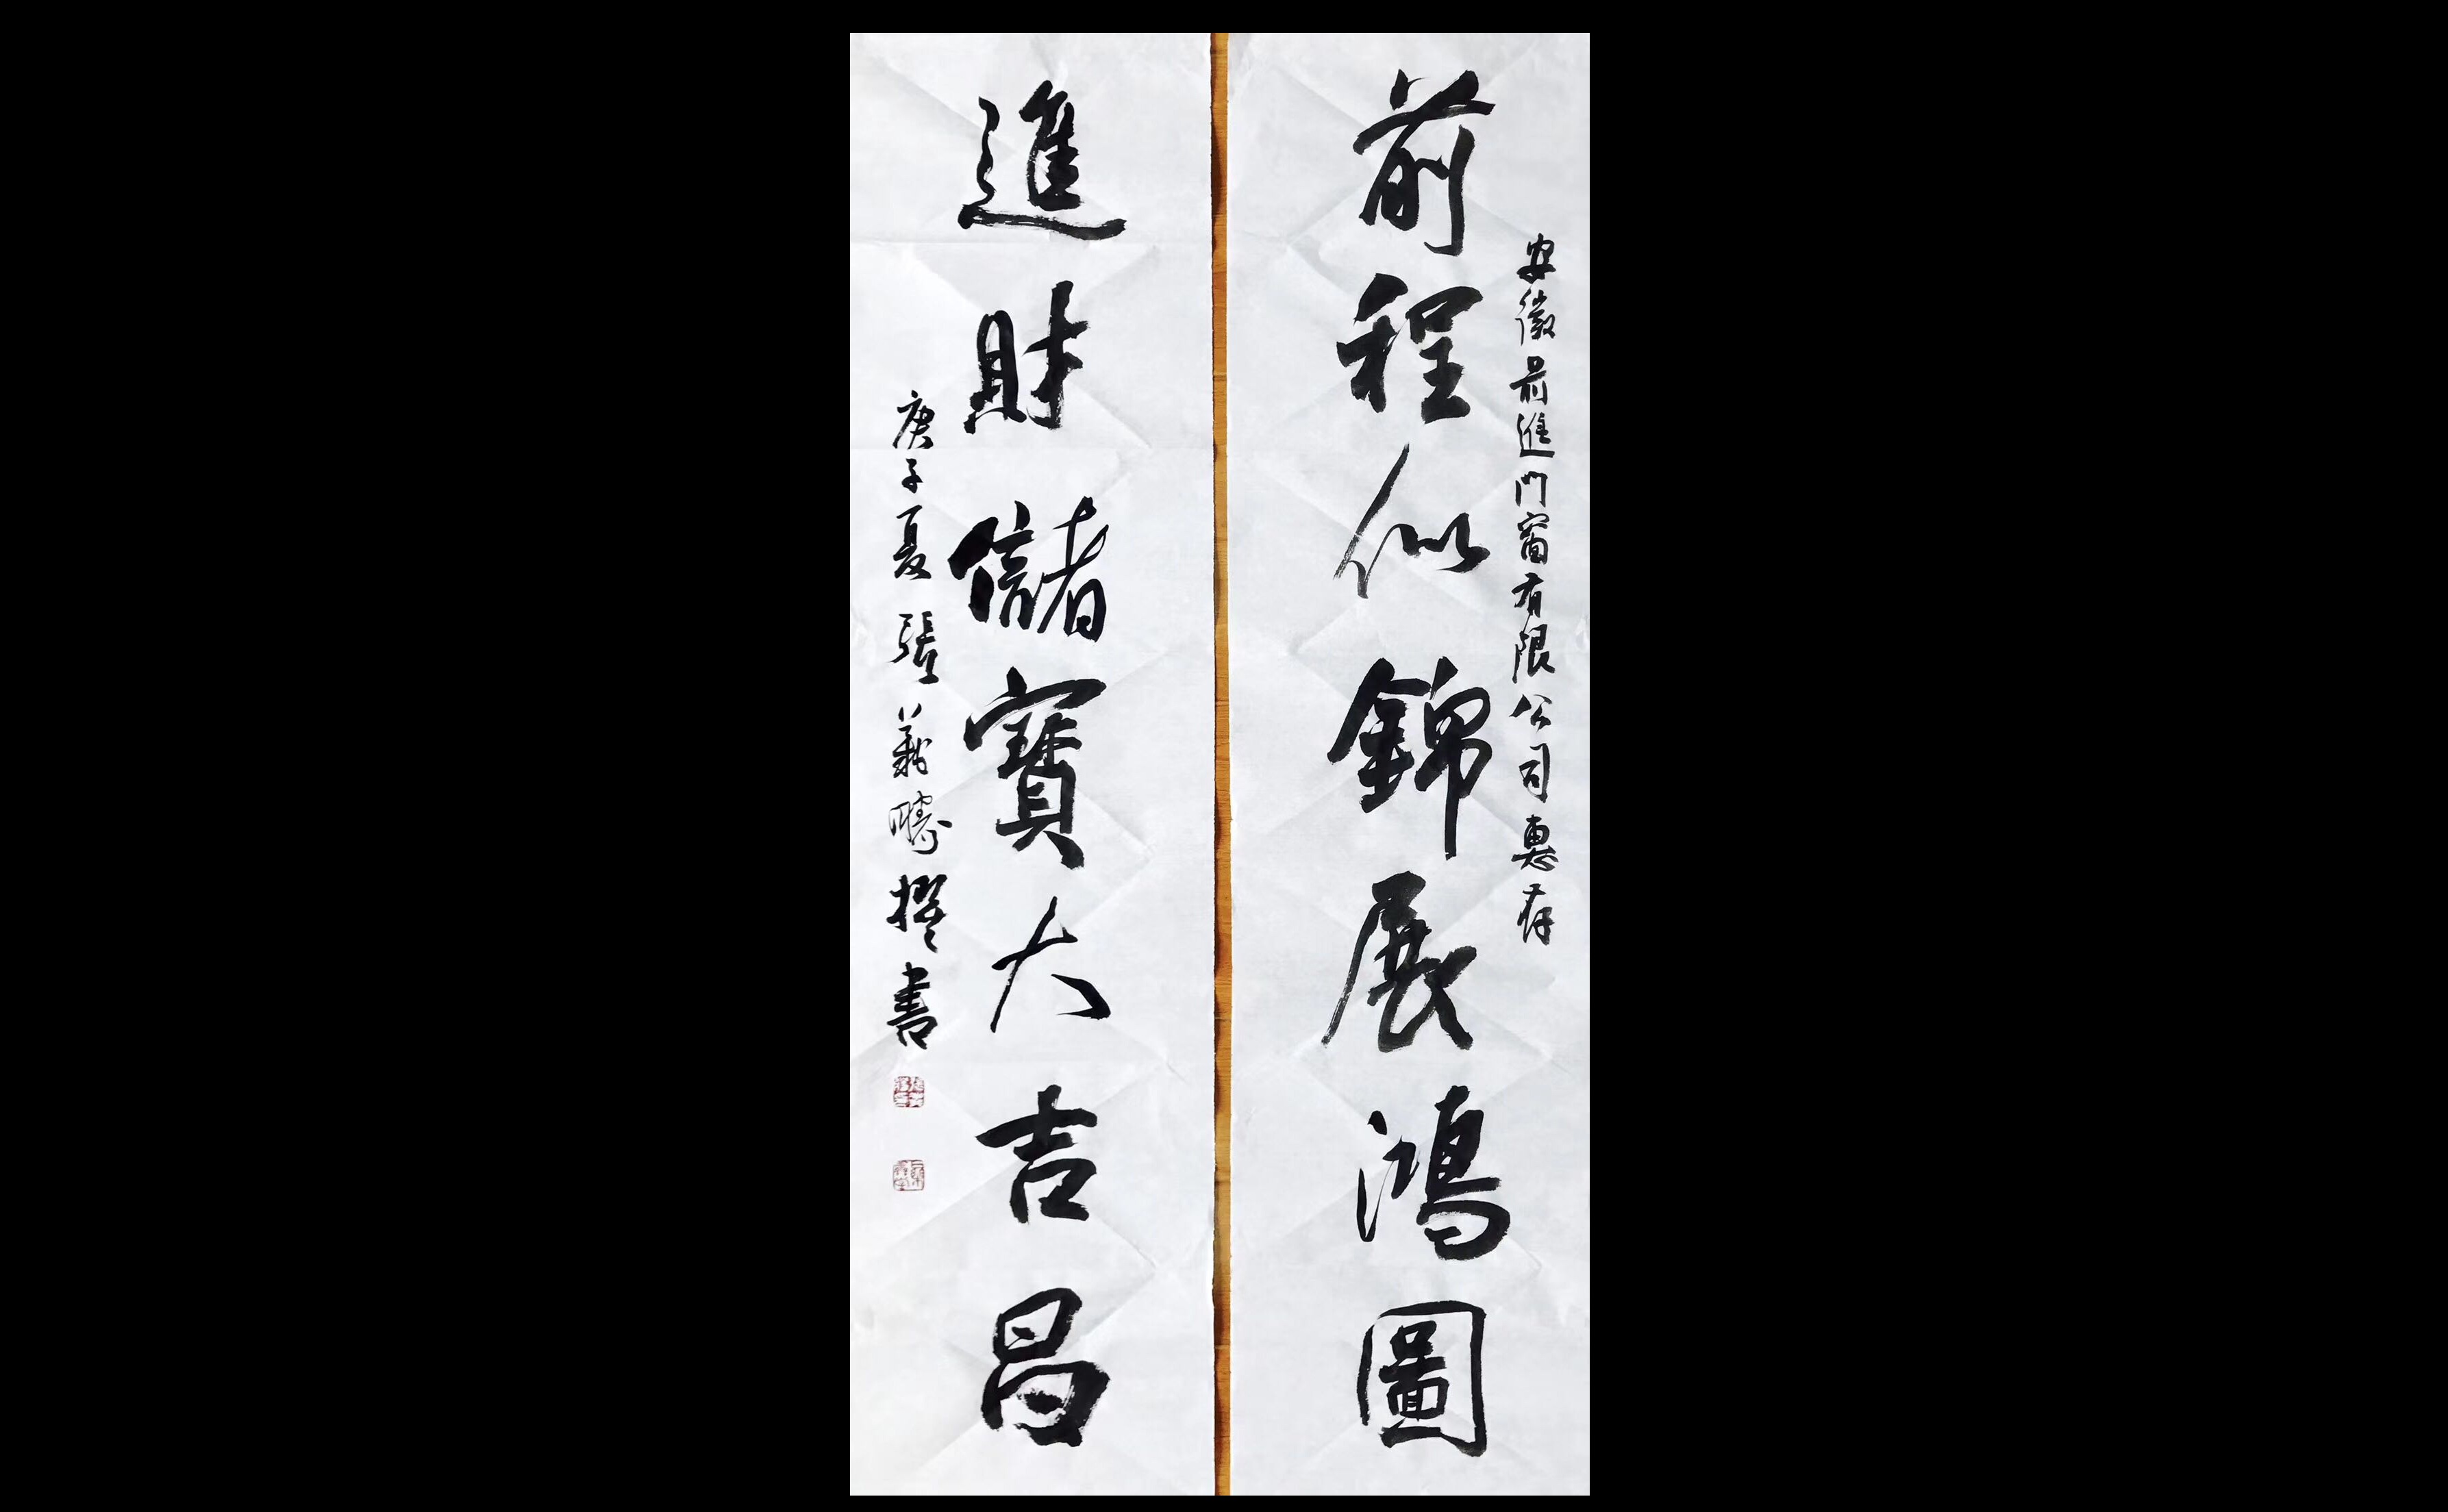 安徽前進門窗有限公司惠存
前程似錦展鴻圖
進財儲寶大吉昌
庚子夏張義勝撰書